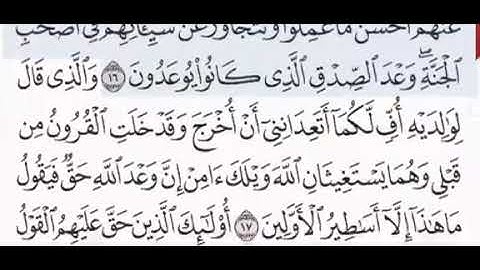 عَنْهُمْ أَحْسَنَ مَا عَمِلُوا۟ وَنَتَجَاوَزُ عَن سَيِّـَٔاتِهِمْ فِىٓ أَصْحَٰبِ
ٱلْجَنَّةِ ۖ وَعْدَ ٱلصِّدْقِ ٱلَّذِى كَانُوا۟ يُوعَدُونَ ١٦ وَٱلَّذِى قَالَ
لِوَٰلِدَيْهِ أُفٍّ لَّكُمَآ أَتَعِدَانِنِىٓ أَنْ أُخْرَجَ وَقَدْ خَلَتِ ٱلْقُرُونُ مِن
قَبْلِى وَهُمَا يَسْتَغِيثَانِ ٱللَّهَ وَيْلَكَ ءَامِنْ إِنَّ وَعْدَ ٱللَّهِ حَقٌّ فَيَقُولُ
مَا هَٰذَآ إِلَّآ أَسَٰطِيرُ ٱلْأَوَّلِينَ ١٧ أُو۟لَٰٓئِكَ ٱلَّذِينَ حَقَّ عَلَيْهِمُ ٱلْقَوْلُ